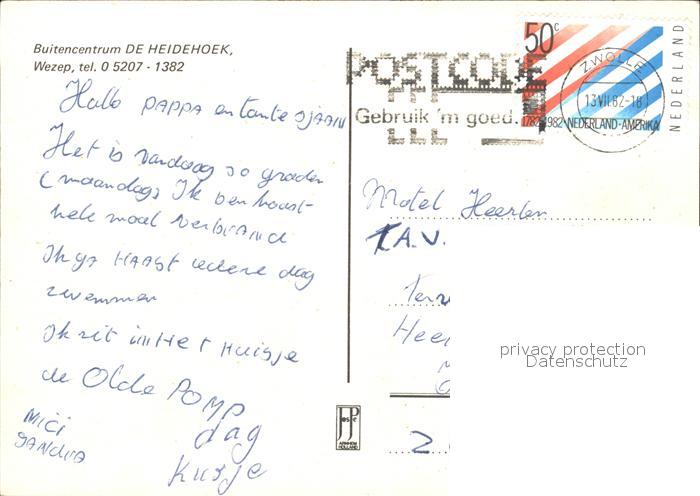 Buitencentrum DE HEIDEHOEK,
Wezep, tel. 0 5207 - 1382
Hallo PAPPA en tante SJAAN
Het is vandaag 30 graden
(maandag) Ik ben haast
hele maal verbrand
Ik ga HAAST iedere dag
zwemmen
Ik zit in Het Huisje
de Olde POMP
dag
Kusje
MICI
SANDRA
POSTCODE
Gebruik 'm goed.
50c
1782-1982 NEDERLAND-AMERIKA
NEDERLAND
ZWOLLE
13 VII 82-18
Motel Heerlen
T.A.V.
Terw
Heer
2
JosPe
ARNHEM
HOLLAND
privacy protection
Datenschutz